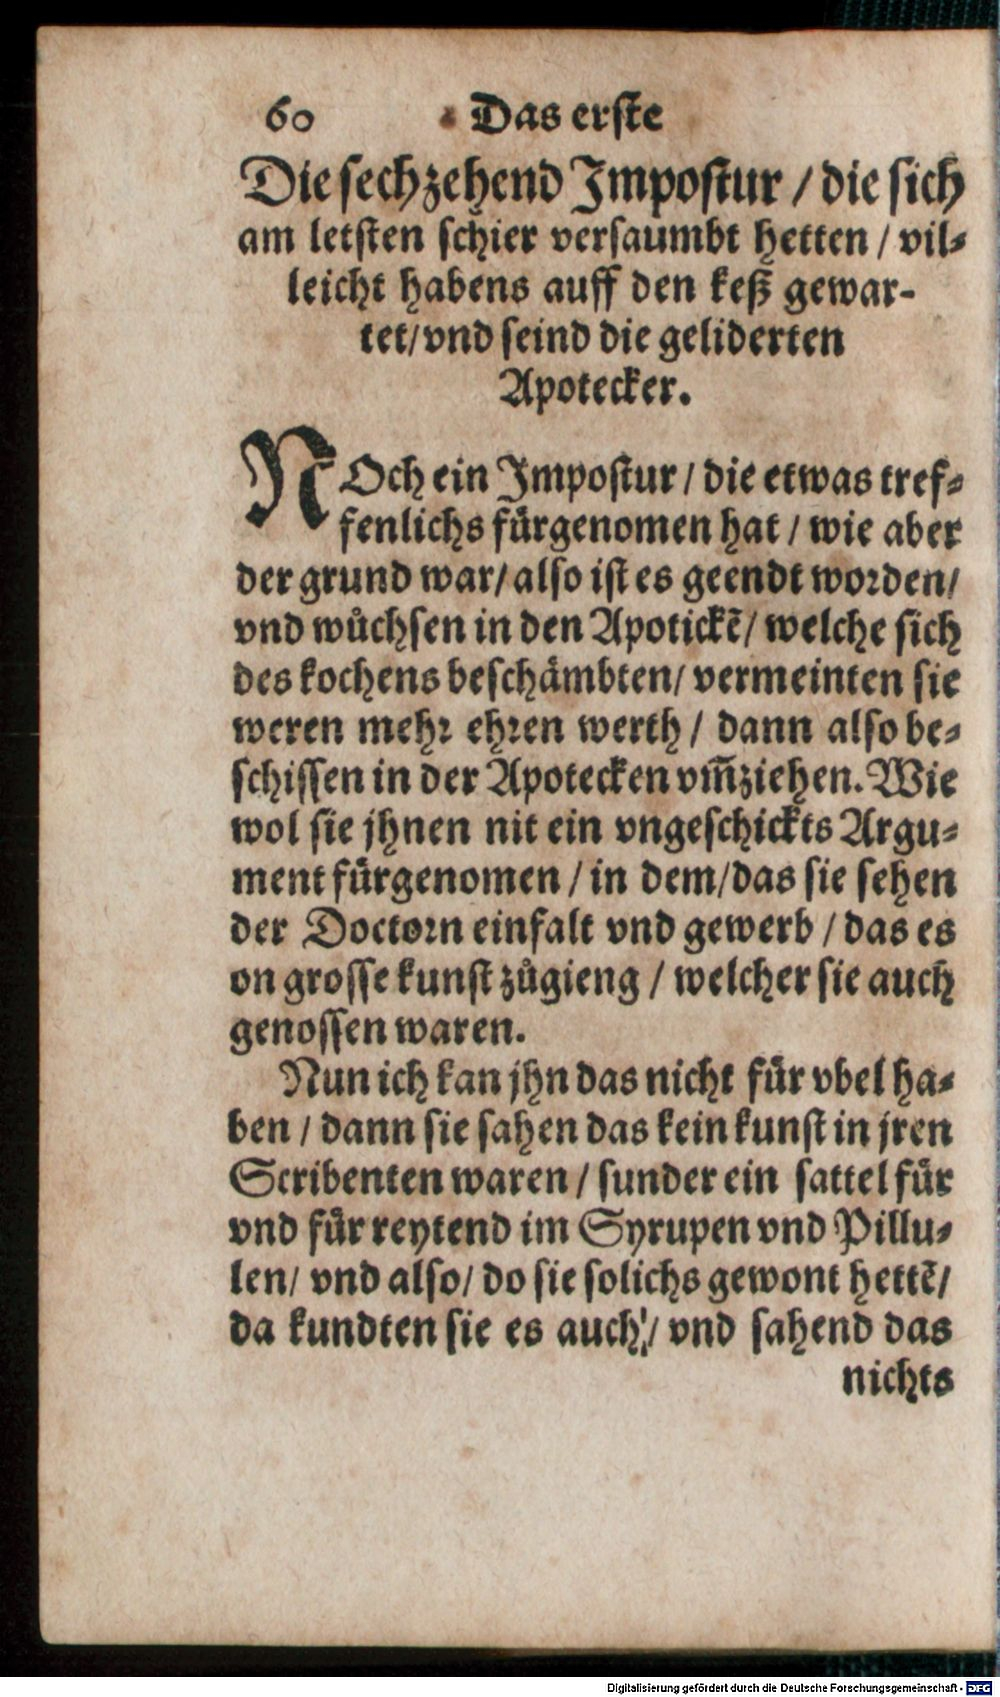 60 Das erste
Die sechzehend Impostur / die sich
am letsten schier versaumbt hetten / vil⸗
leicht habens auff den keß gewar-
tet/ vnd seind die geliderten
Apotecker.
NOch ein Impostur / die etwas tref⸗
fenlichs fürgenomen hat / wie aber
der grund war/ also ist es geendt worden/
vnd wůchsen in den Apotickē/ welche sich
des kochens beschämbten/ vermeinten sie
weren mehr ehren werth / dann also be⸗
schissen in der Apotecken vm̄ziehen. Wie
wol sie jhnen nit ein vngeschickts Argu⸗
ment fürgenomen / in dem/ das sie sehen
der Doctorn einfalt vnd gewerb / das es
on grosse kunst zůgieng / welcher sie auch
genossen waren.
Nun ich kan jhn das nicht für vbel ha⸗
ben / dann sie sahen das kein kunst in jren
Scribenten waren / sunder ein sattel für
vnd für reytend im Syrupen vnd Pillu⸗
len/ vnd also/ do sie solichs gewont hettē/
da kundten sie es auch / vnd sahend das
nichts
Digitalisierung gefördert durch die Deutsche Forschungsgemeinschaft - DFG